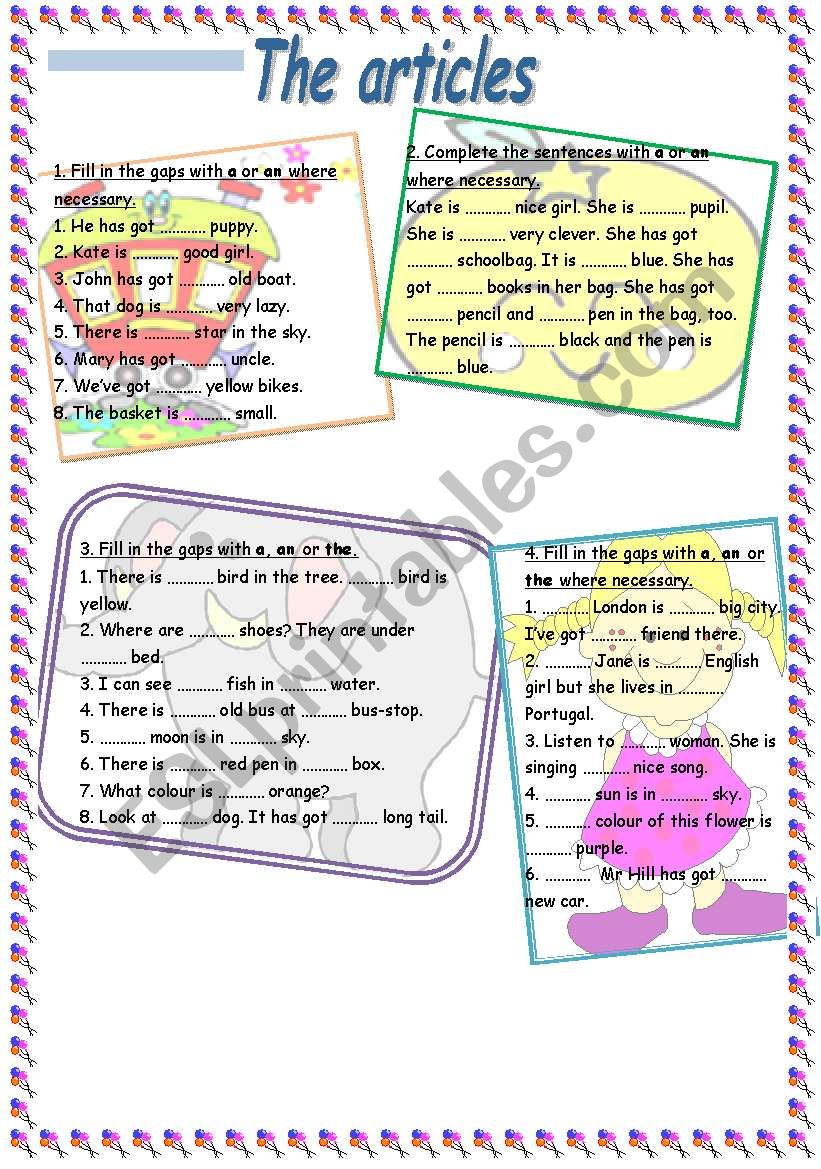 The articles
1. Fill in the gaps with a or an where
necessary.
1. He has got ………… puppy.
2. Kate is ………… good girl.
3. John has got ………… old boat.
4. That dog is ………… very lazy.
5. There is ………… star in the sky.
6. Mary has got ………… uncle.
7. We’ve got ………… yellow bikes.
8. The basket is ………… small.
2. Complete the sentences with a or an
where necessary.
Kate is ………… nice girl. She is ………… pupil.
She is ………… very clever. She has got
………… schoolbag. It is ………… blue. She has
got ………… books in her bag. She has got
………… pencil and ………… pen in the bag, too.
The pencil is ………… black and the pen is
………… blue.
3. Fill in the gaps with a, an or the.
1. There is ………… bird in the tree. ………… bird is
yellow.
2. Where are ………… shoes? They are under
………… bed.
3. I can see ………… fish in ………… water.
4. There is ………… old bus at ………… bus-stop.
5. ………… moon is in ………… sky.
6. There is ………… red pen in ………… box.
7. What colour is ………… orange?
8. Look at ………… dog. It has got ………… long tail.
4. Fill in the gaps with a, an or
the where necessary.
1. ………… London is ………… big city.
I’ve got ………… friend there.
2. ………… Jane is ………… English
girl but she lives in …………
Portugal.
3. Listen to ………… woman. She is
singing ………… nice song.
4. ………… sun is in ………… sky.
5. ………… colour of this flower is
………… purple.
6. ………… Mr Hill has got …………
new car.
ESLprintables.com